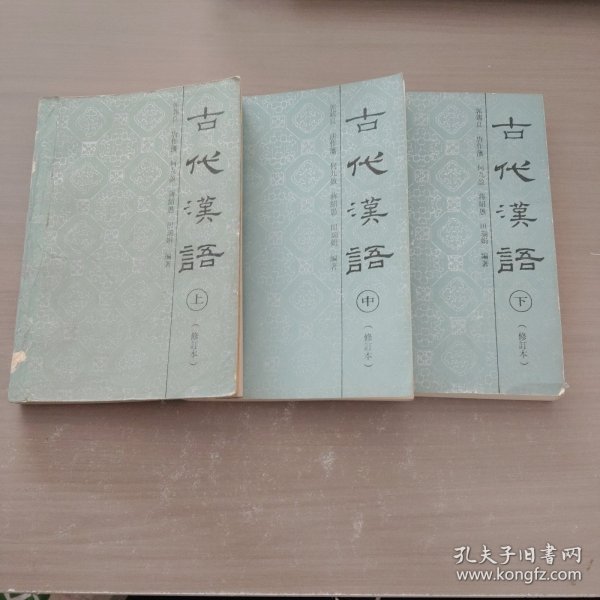 古代漢語
上
(修訂本)
郭錫良 唐作藩 何九盈 蔣紹愚 田瑞娟 編著
古代漢語
中
(修訂本)
郭錫良 唐作藩 何九盈 蔣紹愚 田瑞娟 編著
古代漢語
下
(修訂本)
郭錫良 唐作藩 何九盈 蔣紹愚 田瑞娟 編著
孔夫子旧书网
www.kongfz.com